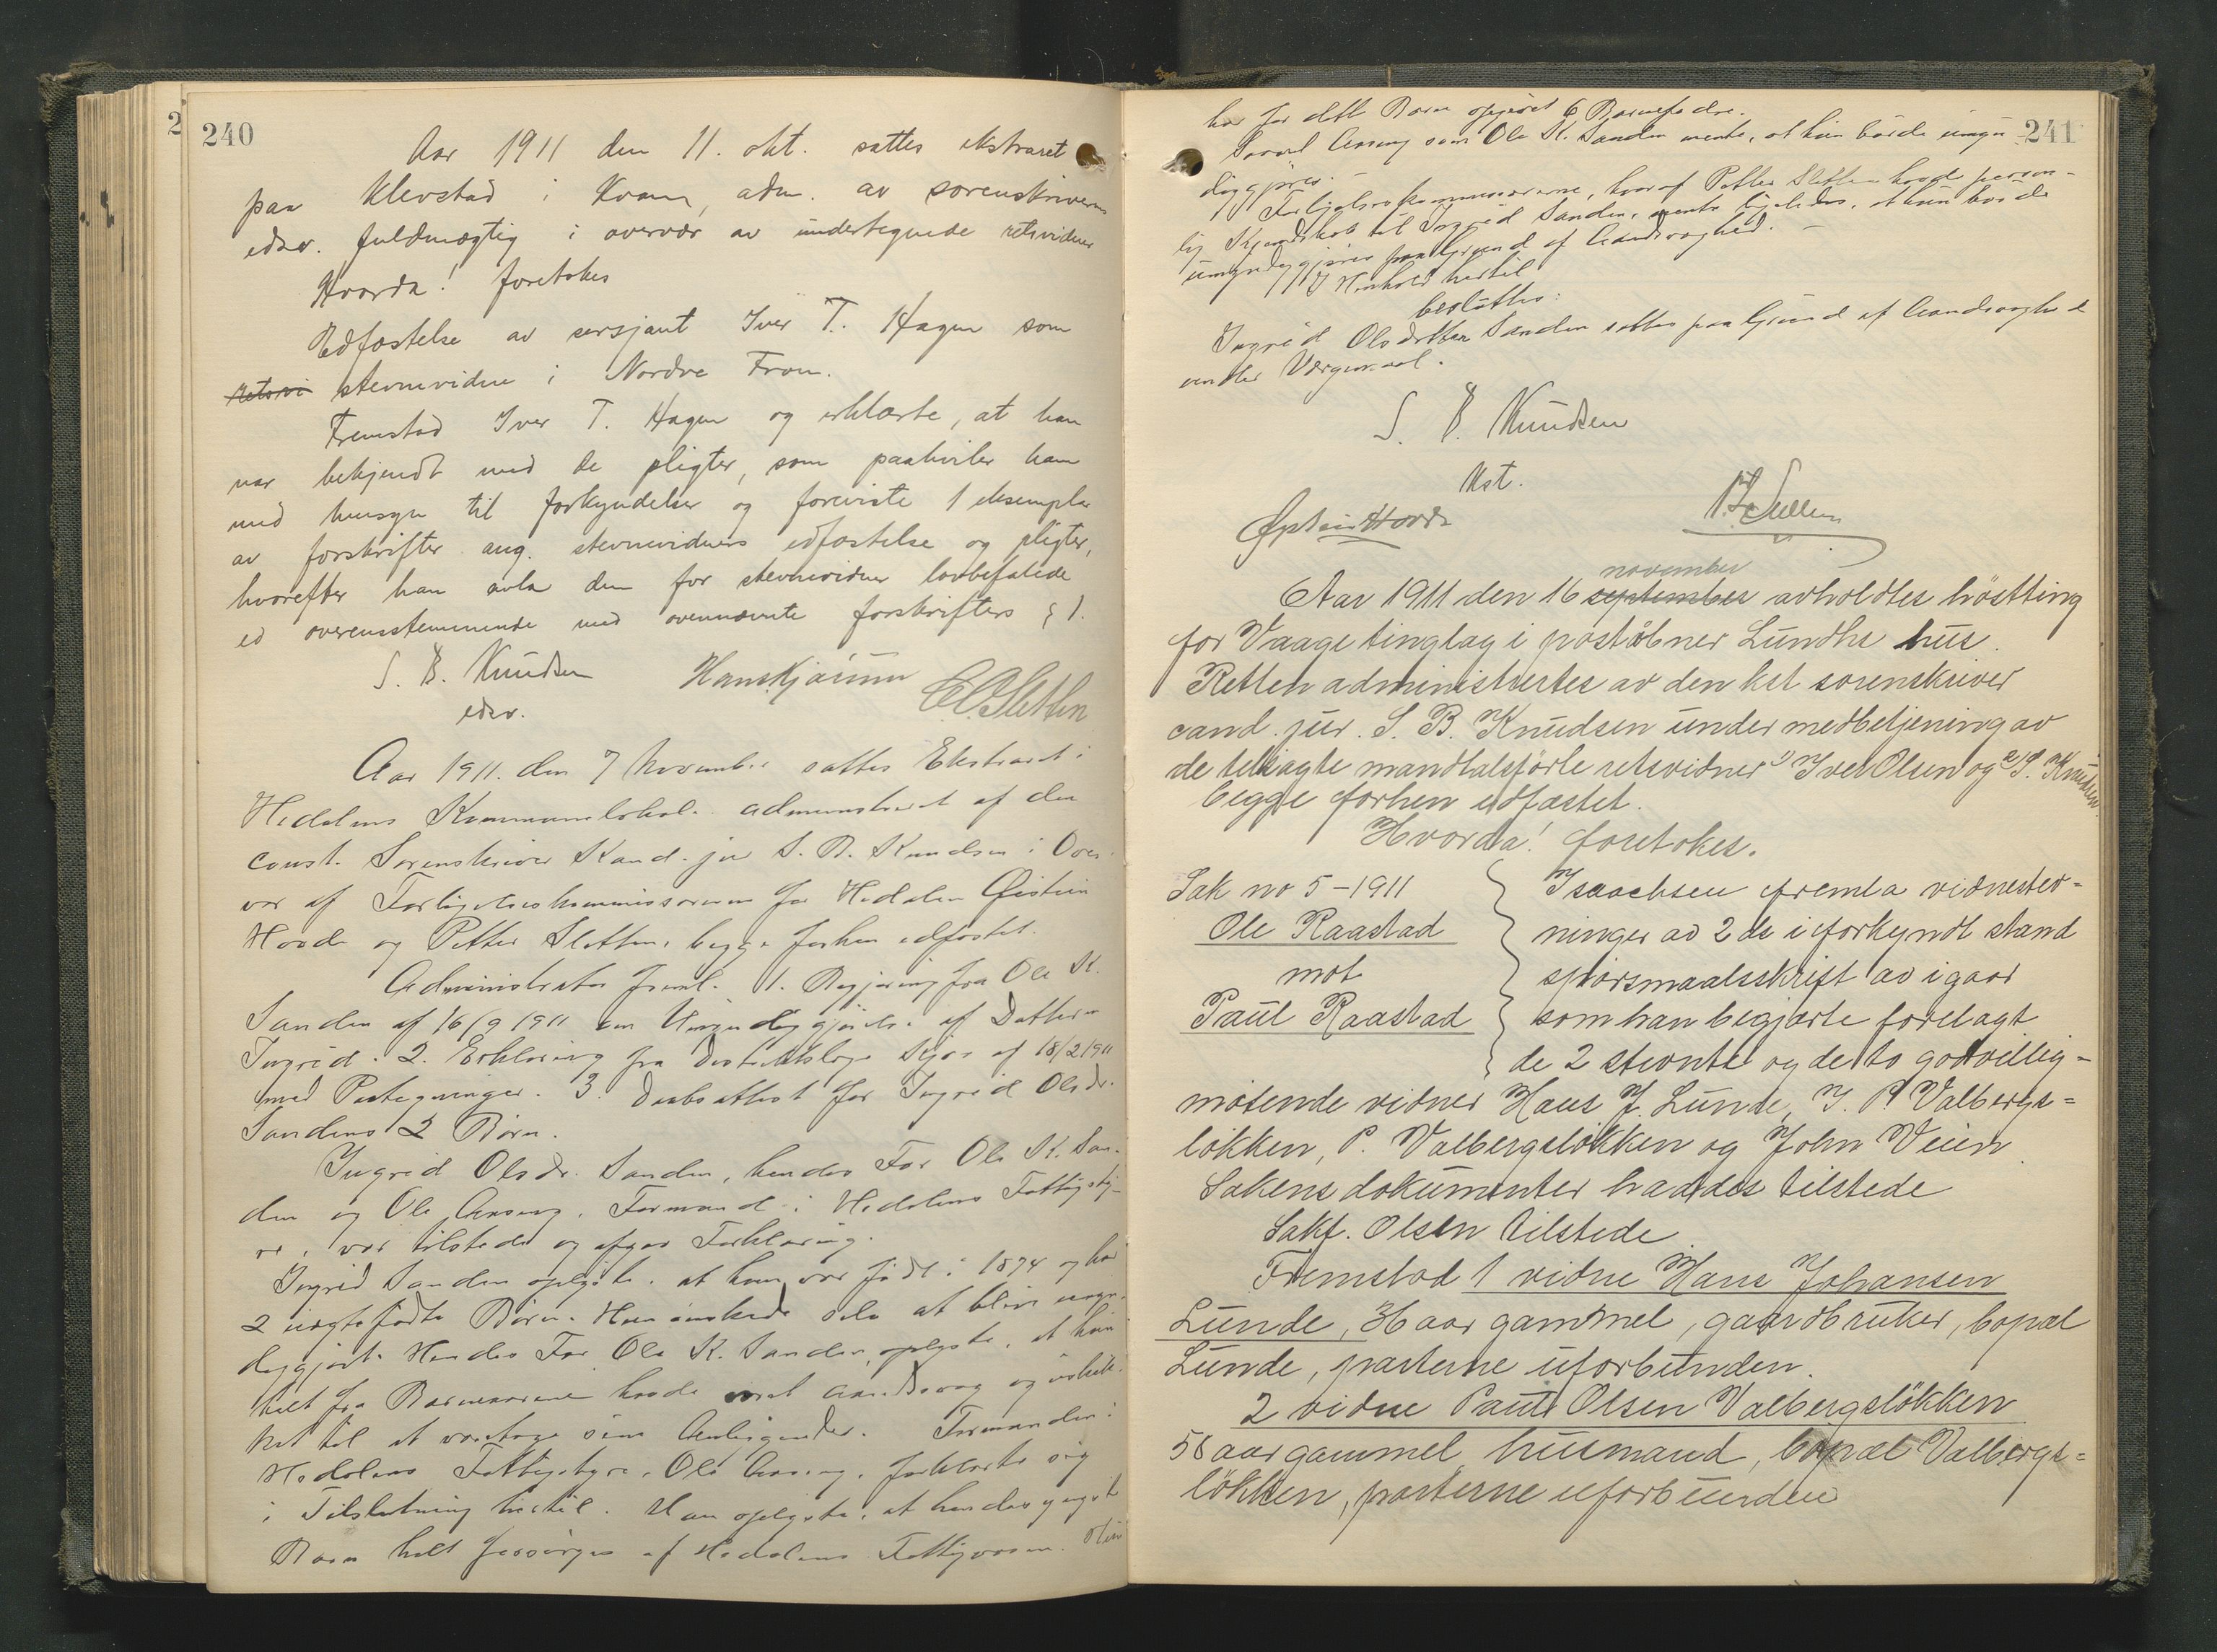 240
Aar 1911 den 11. okt. sattes ekstraret
paa Klevstad i Kvam, adm. av sorenskriverens
edsv. fuldmægtig i overvær av undertegnede retsvidner
Hvorda! foretokes
Edfæstelse av sersjant Iver T. Hagen som
retsvi stevnevidne i Nordre Fron.
Fremstod Iver T. Hagen og erklærte, at han
var bekjendt med de pligter, som paahviler ham
med hensyn til forkyndelser og foreviste 1 eksemplar
av forskrifter ang. stevnevidners edfæstelse og pligter,
hvorefter han avla den for stevnevidner lovbefalede
ed overensstemmende med ovennævnte forskrifters § 1.
S. B. Knudsen Hans Kjørum
edsv.
Aar 1911. den 7 November sattes Ekstraret i
Hedalens Kommunelokal. administreret af den
const. Sorenskriver Kand. jur S. B. Knudsen i Over-
vær af Forligelseskommissærerne for Hedalen Øistein
Hovde og Petter Sletten, begge forhen edfæstet.
Administrator freml. 1. Begjæring fra Ole K.
Sanden af 16/9 1911 om Umyndiggjørelse af Datteren
Ingrid. 2. Erklæring fra Distriktslæge af 18/2 1911
med Paategninger. 3. Daabsattest for Ingrid Olsdr.
Sandens 2 Børn.
Ingrid Olsdr. Sanden, hendes Far Ole K. San-
den og Ole Aaseng, Formand i Hedalens Fattigsty-
re, var tilstede og afgav Forklaring.
Ingrid Sanden oplyste, at hun var født i 1874 og har
2 uægtefødte Børn. Hun ønskede selv at blive umyn-
diggjort. Hendes Far Ole K. Sanden, oplyste, at hun
helt fra Barneaarene havde været aandssvag og uskik-
ket til at varetage sine Anliggender. Formanden i
Hedalens Fattigstyre, Ole Aaseng, forklarte sig
i Tilslutning hertil. Han oplyste, at hendes yngste
Barn helt forsørges af Hedalens Fattigvæsen. Hun
241
har for dette Barn opgivet 6 Barnefædre.
Saavel Aaseng som Ole K. Sanden mente, at hun burde umyn-
diggjøres.
Forligelseskommissærerne, hvoraf Petter Sletten havde person-
lig Kjendskab til Ingrid Sanden, mente ligeledes, at hun burde
umyndiggjøres paa Grund af Aandssvaghed.
I Henhold hertil
besluttes:
Ingrid Olsdatter Sanden sættes paa Grund af Aandssvaghed
under Værgemaal.
S. B. Knudsen
Kst.
Øystein Hovde
november
Aar 1911 den 16 september avholdtes høstting
for Vaage tinglag i poståbner Lundhs hus.
Retten administrertes av den kst sorenskriver
cand. jur. S. B. Knudsen under medbetjening av
de tilsagte mandtalsførte retsvidner 1) Iver Olsen og 2) P. Knudsen
begge forhen edfæstet.
Hvorda! foretokes.
Sak no 5 - 1911
Ole Raastad
mot
Paul Raastad
Isaachsen fremla vidnestev-
ninger av 2 ds i forkyndt stand
spørsmaalsskrift av igaar
som han begjærte forelagt
de 2 stevnte og de to godvillig-
møtende vidner Hans J. Lunde, I. P. Valbergs-
løkken, P. Valbergsløkken og John Veien
Sakens dokumenter haddes tilstede
Sakf. Olsen tilstede
Fremstod 1 vidne Hans Johansen
Lunde, 36 aar gammel, gaardbruker, bopæl
Lunde, parterne uforbunden.
2 vidne Paul Olsen Valbergsløkken
58 aar gammel, husmand, bopæl Valbergs-
løkken, parterne uforbunden